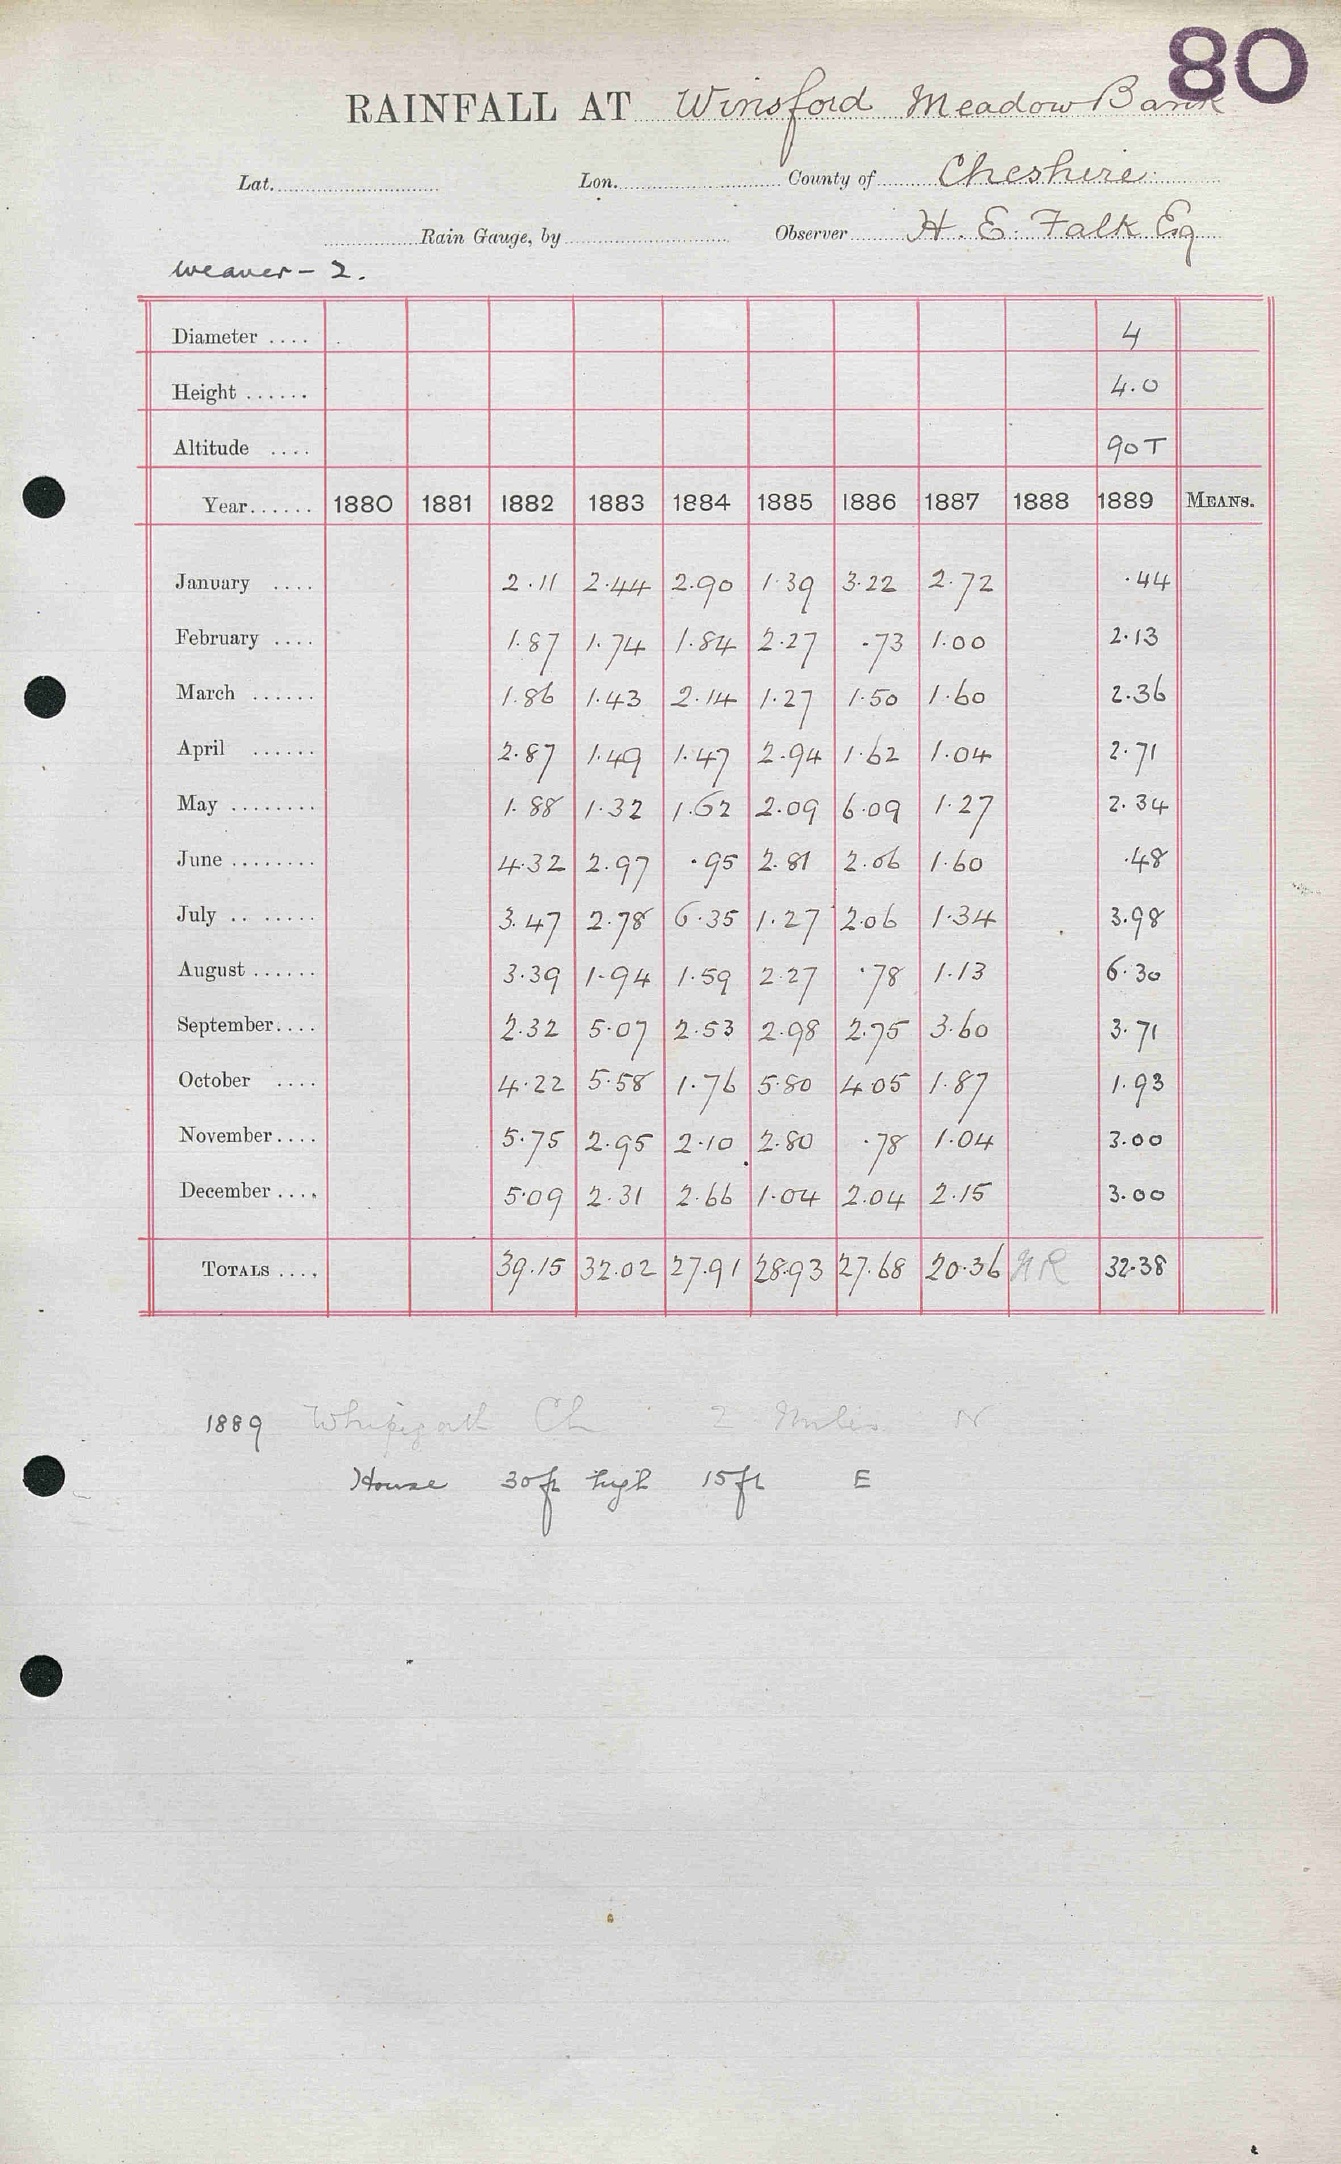 80
RAINFALL AT Winsford Meadow Bank
Lat. Lon. County of Cheshire
Rain Gauge, by Observer H. E. Falk Esq
Weaver - 2.
Diameter .... 4
Height ...... 4.0
Altitude .... 90T
Year...... 1880 1881 1882 1883 1884 1885 1886 1887 1888 1889 MEANS.
January .... 2.11 2.44 2.90 1.39 3.22 2.72 .44
February .... 1.87 1.74 1.84 2.27 .73 1.00 2.13
March ...... 1.86 1.43 2.14 1.27 1.50 1.60 2.36
April ...... 2.87 1.49 1.47 2.94 1.62 1.04 2.71
May ........ 1.88 1.32 1.62 2.09 6.09 1.27 2.34
June ........ 4.32 2.97 .95 2.81 2.06 1.60 .48
July .. ...... 3.47 2.78 6.35 1.27 2.06 1.34 3.98
August ...... 3.39 1.94 1.59 2.27 .78 1.13 6.30
September.... 2.32 5.07 2.53 2.98 2.75 3.60 3.71
October .... 4.22 5.58 1.76 5.80 4.05 1.87 1.93
November.... 5.75 2.95 2.10 2.80 .78 1.04 3.00
December .... 5.09 2.31 2.66 1.04 2.04 2.15 3.00
TOTALS .... 39.15 32.02 27.91 28.93 27.68 20.36 NR 32.38
1889 Ch 2 Miles N
House 30ft high 15ft E